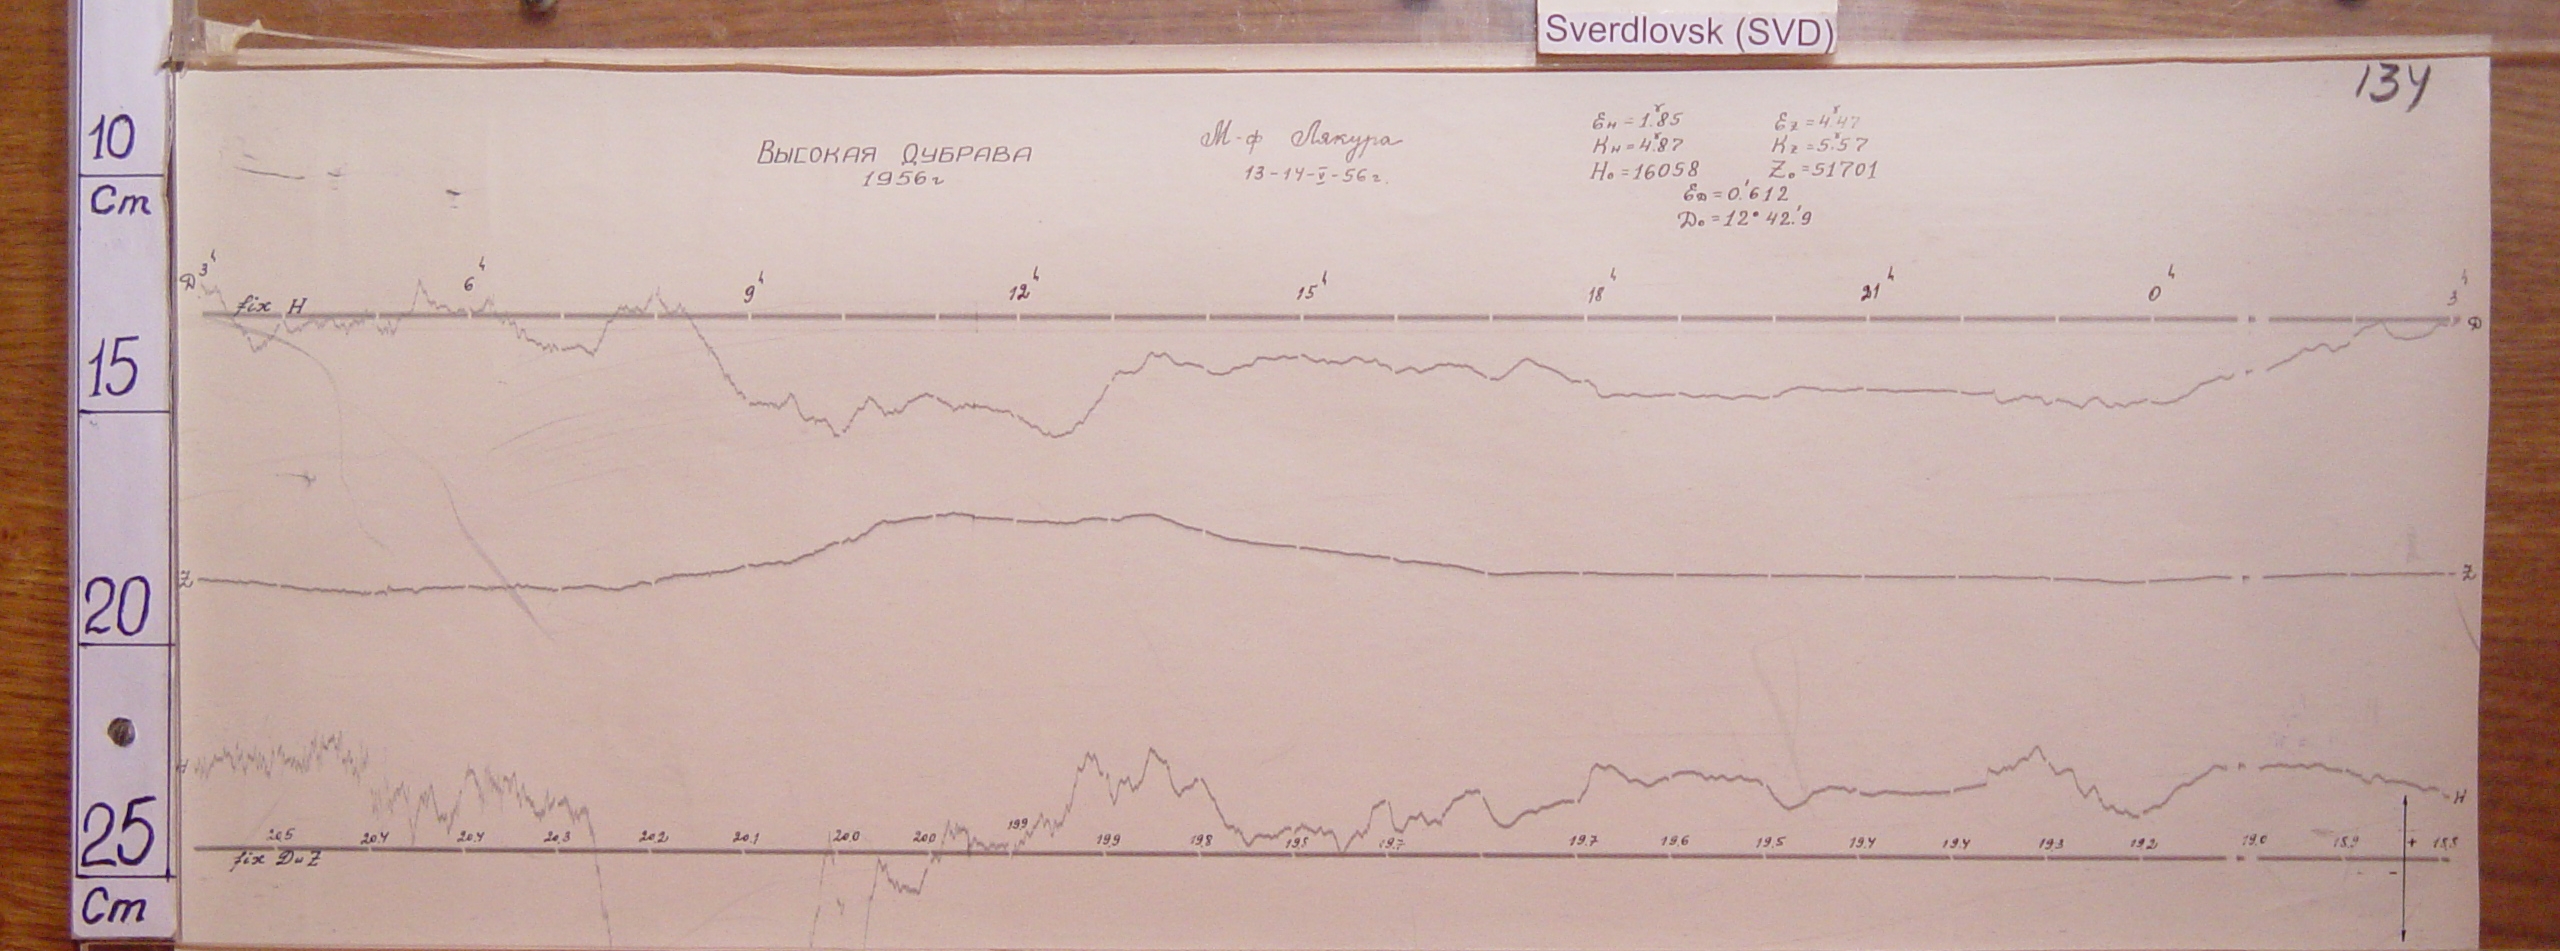 Sverdlovsk (SVD)
134
10
Cm
15
20
25
Cm
ВЫСОКАЯ ДУБРАВА
1956г
М-ф Лякура
13-14-V-56г.
Ен=1.85γ Ez=4.47γ
Кн=4.87γ Kz=5.57γ
Н₀=16058 Z₀=51701
ЕD=0.'612
D₀=12° 42.'9
D 3h 6h 9h 12h 15h 18h 21h 0h 3h
fix H
D
Z Z
H H
20.5 20.4 20.4 20.3 20.2 20.1 20.0 20.0 19.9 19.9 19.8 19.8 19.7 19.7 19.6 19.5 19.4 19.4 19.3 19.2 19.0 18.9 + 18.8
fix D и Z
-